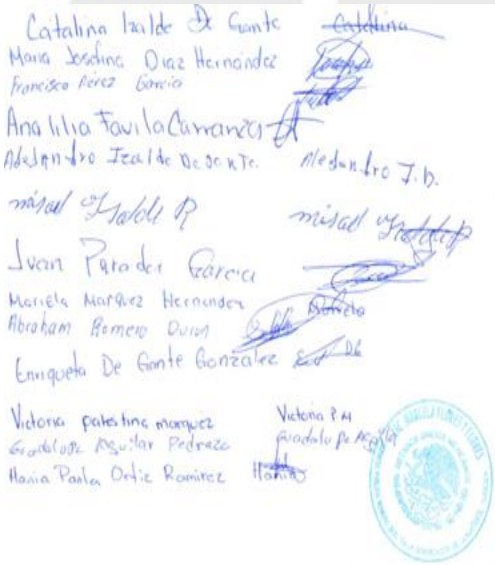 Catalina Izalde De Gante Catalina
Maria Josefina Diaz Hernández
Francisco Perez Garcia
Ana lilia Favila Carranza
Alejandro Izalde De Gante. Alejandro I. D.
misael Izalde R misael Izalde R
Juan Paredes Garcia
Mariela Marquez Hernandez Mariela
Abraham Romero Duran
Enriqueta De Gante Gonzalez
Victoria palestina marquez Victoria P M
Guadalupe Aguilar Pedraza Guadalupe Aguilar
Hania Paola Ortiz Ramirez Hania